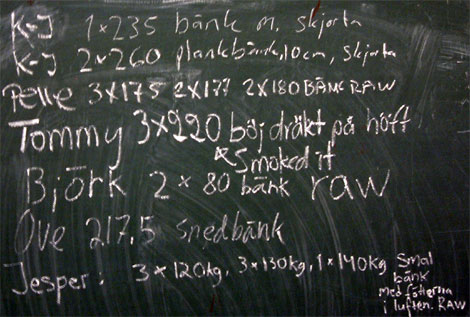 K-J 1x235 bänk m. skjorta
K-J 2x260 plankbänk, 10cm, skjorta
Pelle 3x175 2x177 2x180 BÄNK RAW
Tommy 3x220 böj dräkt på höft
& Smoked it
Björk 2x80 bänk raw
Ove 217,5 snedbänk
Jesper: 3x120kg, 3x130kg, 1x140kg Smal
bänk
med fötterna
i luften. RAW